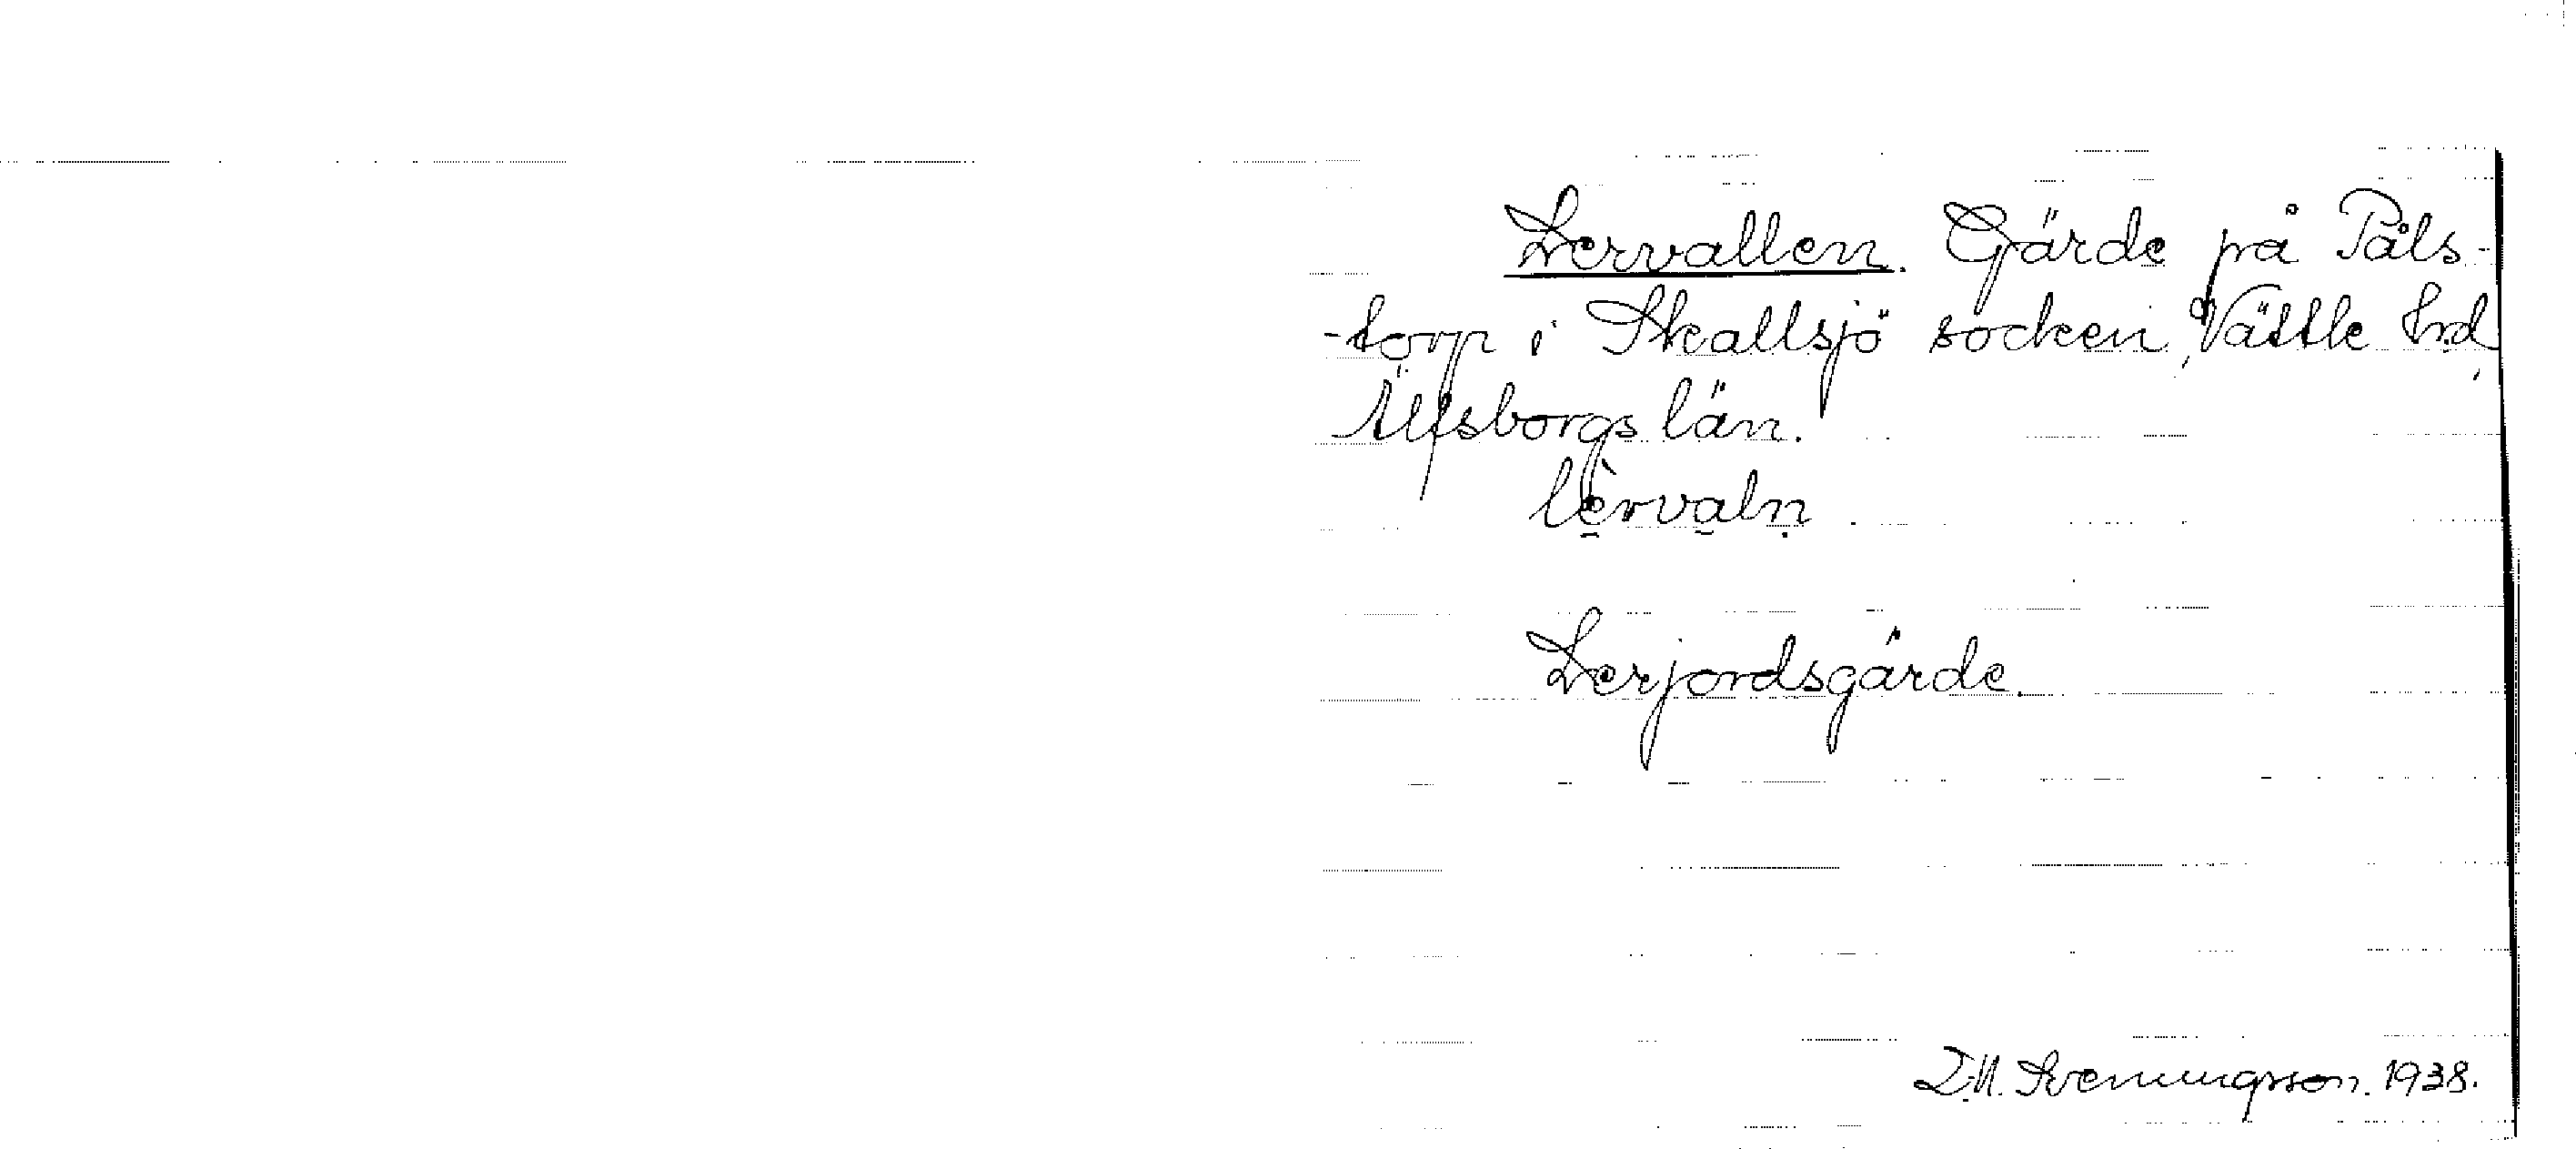 Lervallen. Gärde på Påls-
-torp i Skallsjö socken, Vättle hrd,
Älfsborgs län.
lèrvaln
Lerjordsgärde.
Svenungsson. 1938.